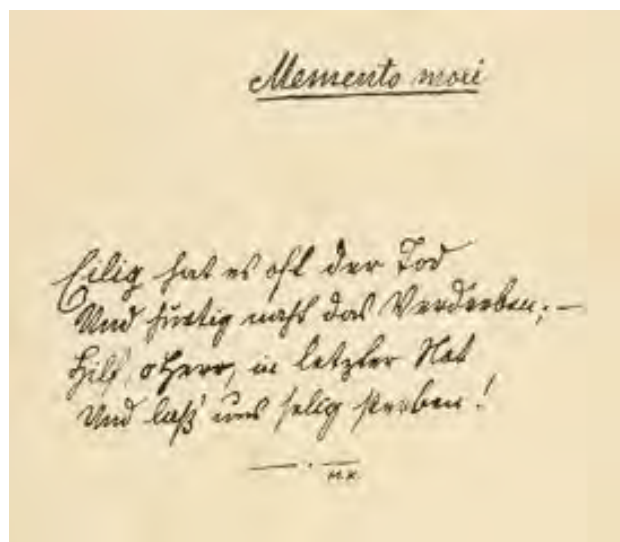 Memento mori
Eilig hat es oft der Tod
Und hurtig naht das Verderben; —
Hilf, o Herr, in letzter Not
Und laß' uns selig sterben!
M.K.